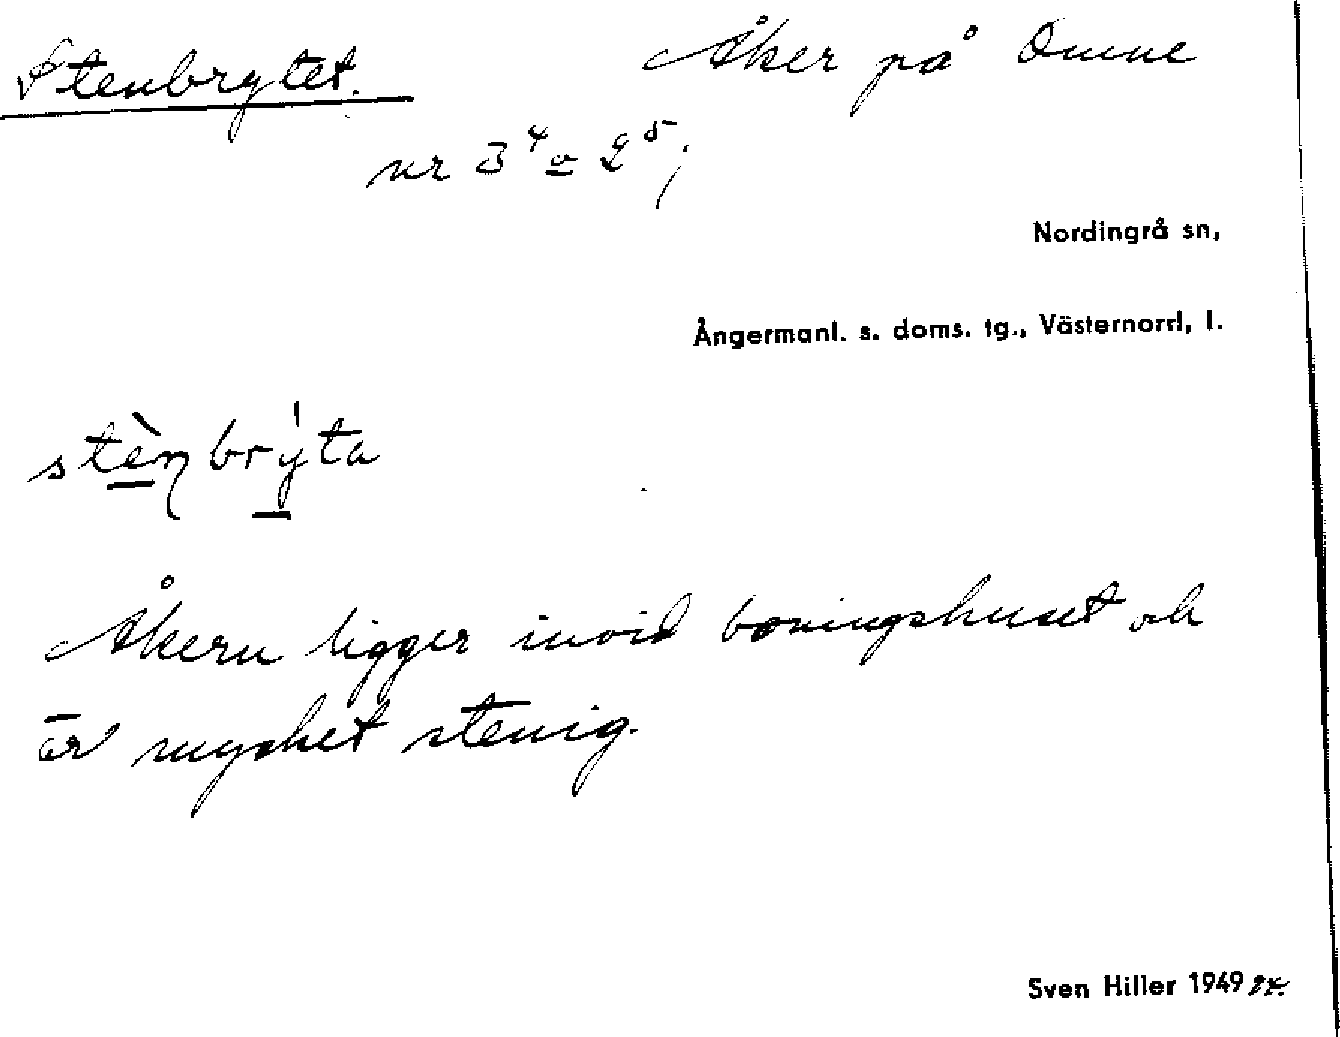 Stenbrytet. Åker på Omne
nr 3⁴ o 2⁵;
Nordingrå sn,
Ångermanl. s. doms. tg., Västernorrl, l.
stèn brýta
Åkern ligger invid boningshuset och
är mycket stenig.
Sven Hiller 1949